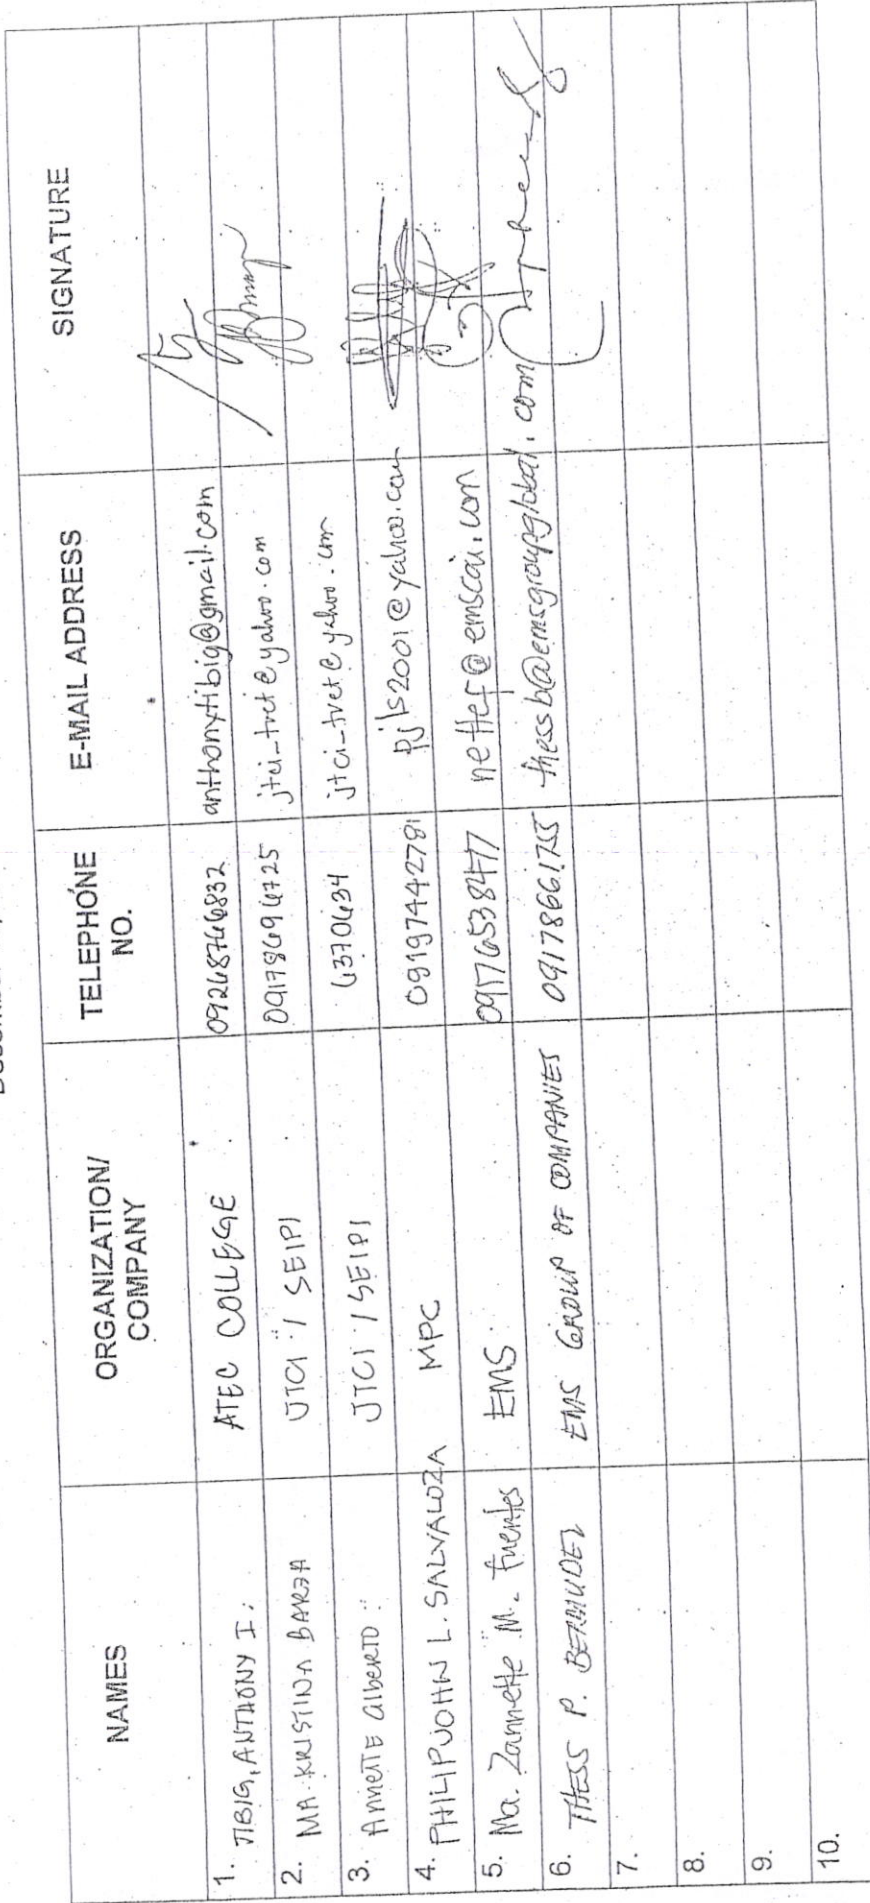 NAMES ORGANIZATION/ COMPANY TELEPHONE NO. E-MAIL ADDRESS SIGNATURE
1. TIBIG, ANTHONY I. ATEC COLLEGE anthonytibig@gmail.com
2. MA. KRISTINA BARJA JTCI / SEIPI jtci_tvet@yahoo.com
3. Annette Alberto JTCI / SEIPI 6370634 jtci_tvet@yahoo.com
4. PHILIPJOHN L. SALVALOZA MPC 09197442781 pjls2001@yahoo.com
5. Ma. Zannette M. Fuentes EMS 09176538477 nettef@emscai.com
6. THESS P. BERMUDEZ EMS GROUP OF COMPANIES 09178661755 thessb@emsgroupglobal.com
7.
8.
9.
10.